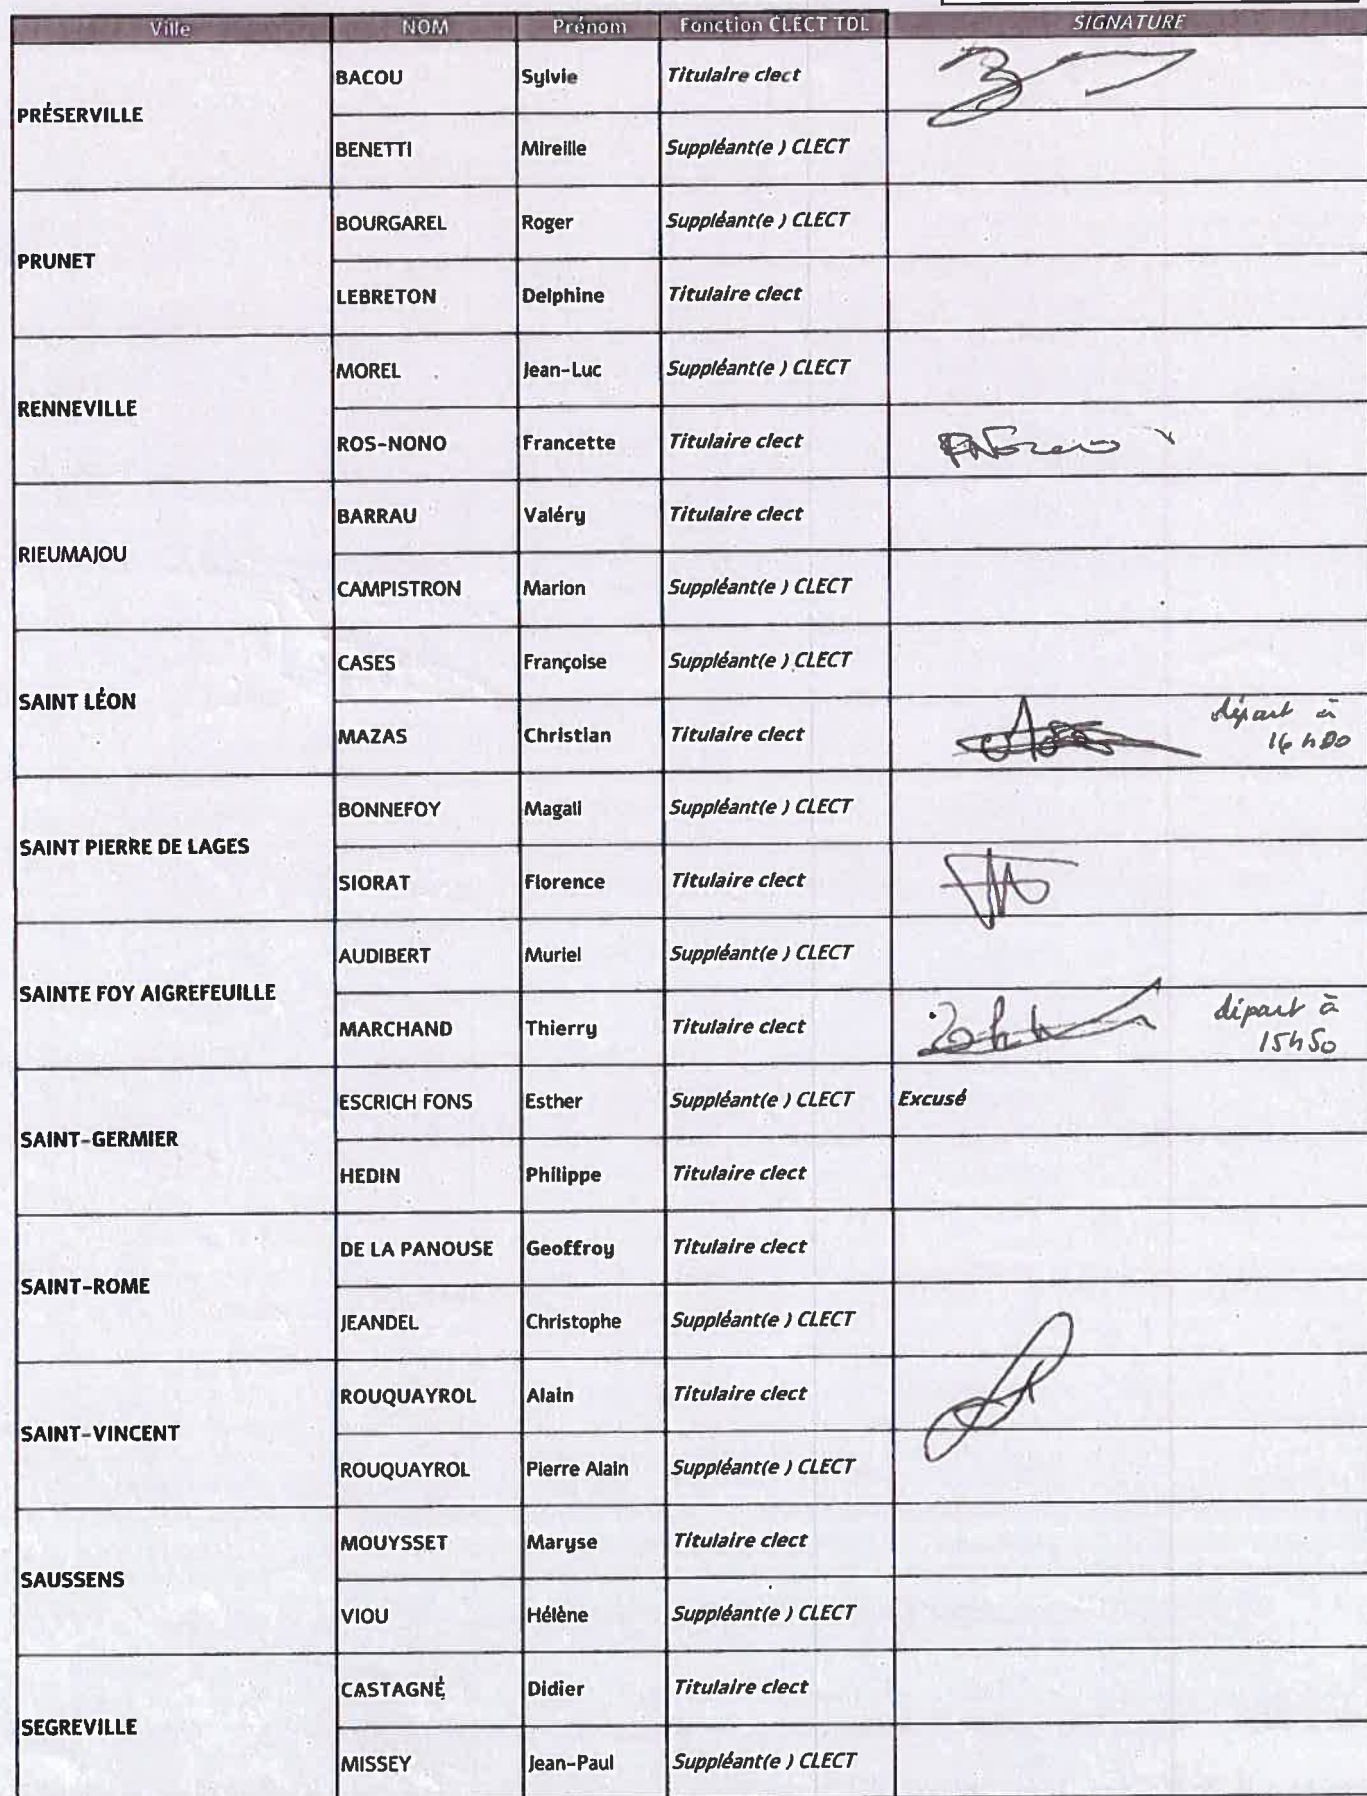 Ville NOM Prénom Fonction CLECT TDL SIGNATURE
PRÉSERVILLE
BACOU Sylvie Titulaire clect
BENETTI Mireille Suppléant(e ) CLECT
PRUNET
BOURGAREL Roger Suppléant(e ) CLECT
LEBRETON Delphine Titulaire clect
RENNEVILLE
MOREL Jean-Luc Suppléant(e ) CLECT
ROS-NONO Francette Titulaire clect
RIEUMAJOU
BARRAU Valéry Titulaire clect
CAMPISTRON Marion Suppléant(e ) CLECT
SAINT LÉON
CASES Françoise Suppléant(e ) CLECT
MAZAS Christian Titulaire clect départ à
SAINT PIERRE DE LAGES
BONNEFOY Magali Suppléant(e ) CLECT
SIORAT Florence Titulaire clect
SAINTE FOY AIGREFEUILLE
AUDIBERT Muriel Suppléant(e ) CLECT
MARCHAND Thierry Titulaire clect départ à
15h50
SAINT-GERMIER
ESCRICH FONS Esther Suppléant(e ) CLECT Excusé
HEDIN Philippe Titulaire clect
SAINT-ROME
DE LA PANOUSE Geoffroy Titulaire clect
JEANDEL Christophe Suppléant(e ) CLECT
SAINT-VINCENT
ROUQUAYROL Alain Titulaire clect
ROUQUAYROL Pierre Alain Suppléant(e ) CLECT
SAUSSENS
MOUYSSET Maryse Titulaire clect
VIOU Hélène Suppléant(e ) CLECT
SEGREVILLE
CASTAGNÉ Didier Titulaire clect
MISSEY Jean-Paul Suppléant(e ) CLECT